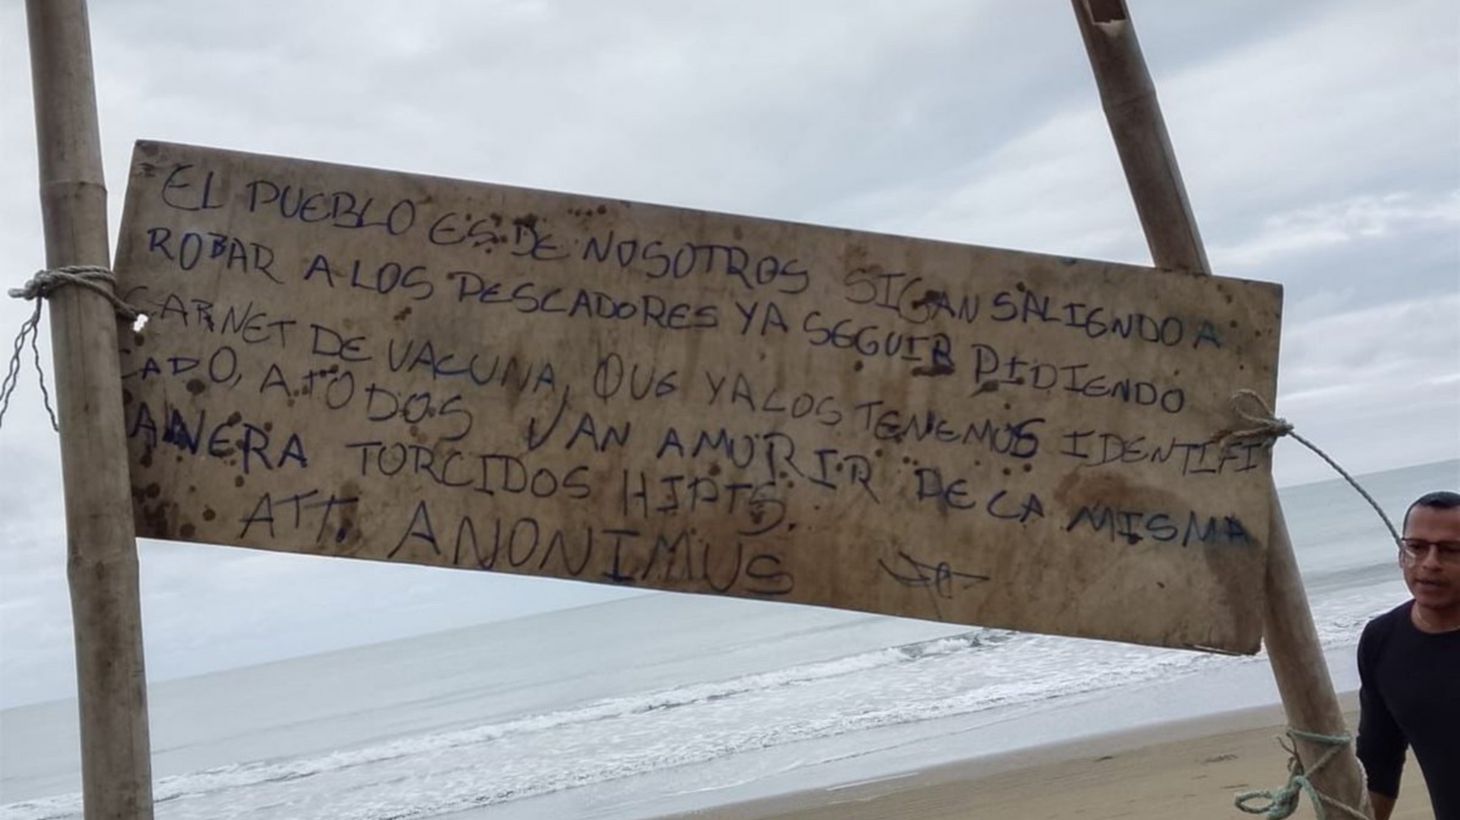 EL PUEBLO ES DE NOSOTROS SIGAN SALIENDO A
ROBAR A LOS PESCADORES YA SEGUIR PIDIENDO
CARNET DE VACUNA, QUE YA LOS TENEMOS IDENTIFI
CADO, A TODOS VAN AMORIR DE LA MISMA
MANERA TORCIDOS HIPTS.
ATT. ANONIMUS